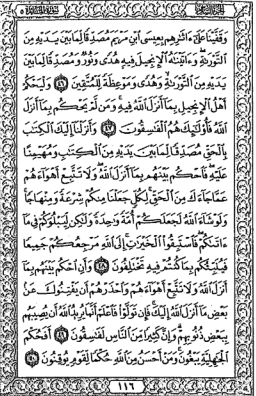 وَقَفَّيْنَا عَلَىٰٓ ءَاثَٰرِهِم بِعِيسَى ٱبْنِ مَرْيَمَ مُصَدِّقًا لِّمَا بَيْنَ يَدَيْهِ مِنَ
ٱلتَّوْرَىٰةِ وَءَاتَيْنَٰهُ ٱلْإِنجِيلَ فِيهِ هُدًى وَنُورٌ وَمُصَدِّقًا لِّمَا بَيْنَ
يَدَيْهِ مِنَ ٱلتَّوْرَىٰةِ وَهُدًى وَمَوْعِظَةً لِّلْمُتَّقِينَ ٤٦ وَلْيَحْكُمْ
أَهْلُ ٱلْإِنجِيلِ بِمَآ أَنزَلَ ٱللَّهُ فِيهِ وَمَن لَّمْ يَحْكُم بِمَآ أَنزَلَ
ٱللَّهُ فَأُو۟لَٰٓئِكَ هُمُ ٱلْفَٰسِقُونَ ٤٧ وَأَنزَلْنَآ إِلَيْكَ ٱلْكِتَٰبَ
بِٱلْحَقِّ مُصَدِّقًا لِّمَا بَيْنَ يَدَيْهِ مِنَ ٱلْكِتَٰبِ وَمُهَيْمِنًا
عَلَيْهِ فَٱحْكُم بَيْنَهُم بِمَآ أَنزَلَ ٱللَّهُ وَلَا تَتَّبِعْ أَهْوَآءَهُمْ
عَمَّا جَآءَكَ مِنَ ٱلْحَقِّ لِكُلٍّ جَعَلْنَا مِنكُمْ شِرْعَةً وَمِنْهَاجًا
وَلَوْ شَآءَ ٱللَّهُ لَجَعَلَكُمْ أُمَّةً وَٰحِدَةً وَلَٰكِن لِّيَبْلُوَكُمْ فِى مَآ
ءَاتَىٰكُمْ فَٱسْتَبِقُوا۟ ٱلْخَيْرَٰتِ إِلَى ٱللَّهِ مَرْجِعُكُمْ جَمِيعًا
فَيُنَبِّئُكُم بِمَا كُنتُمْ فِيهِ تَخْتَلِفُونَ ٤٨ وَأَنِ ٱحْكُم بَيْنَهُم بِمَآ
أَنزَلَ ٱللَّهُ وَلَا تَتَّبِعْ أَهْوَآءَهُمْ وَٱحْذَرْهُمْ أَن يَفْتِنُوكَ عَنۢ
بَعْضِ مَآ أَنزَلَ ٱللَّهُ إِلَيْكَ فَإِن تَوَلَّوْا۟ فَٱعْلَمْ أَنَّمَا يُرِيدُ ٱللَّهُ أَن يُصِيبَهُم
بِبَعْضِ ذُنُوبِهِمْ وَإِنَّ كَثِيرًا مِّنَ ٱلنَّاسِ لَفَٰسِقُونَ ٤٩ أَفَحُكْمَ
ٱلْجَٰهِلِيَّةِ يَبْغُونَ وَمَنْ أَحْسَنُ مِنَ ٱللَّهِ حُكْمًا لِّقَوْمٍ يُوقِنُونَ ٥٠
١١٦